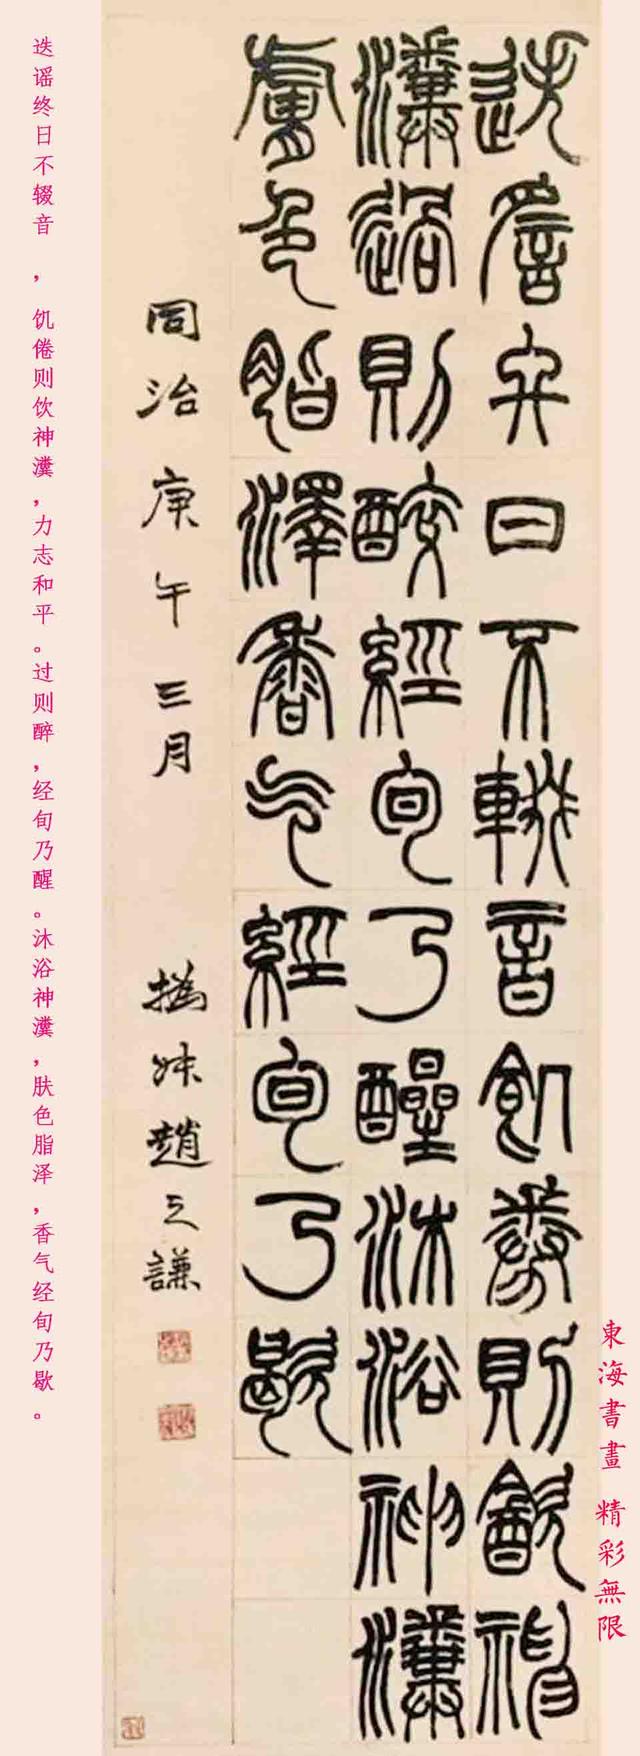 東海書畫 精彩無限
迭䚻夂日不輟音飢劵則飲神
瀵過則醉經旬乃醒沐浴神瀵
膚色脂澤香气經旬乃歇
同治庚午三月 撝叔趙之謙
迭谣终日不辍音，饥倦则饮神瀵，力志和平。过则醉，经旬乃醒。沐浴神瀵，肤色脂泽，香气经旬乃歇。